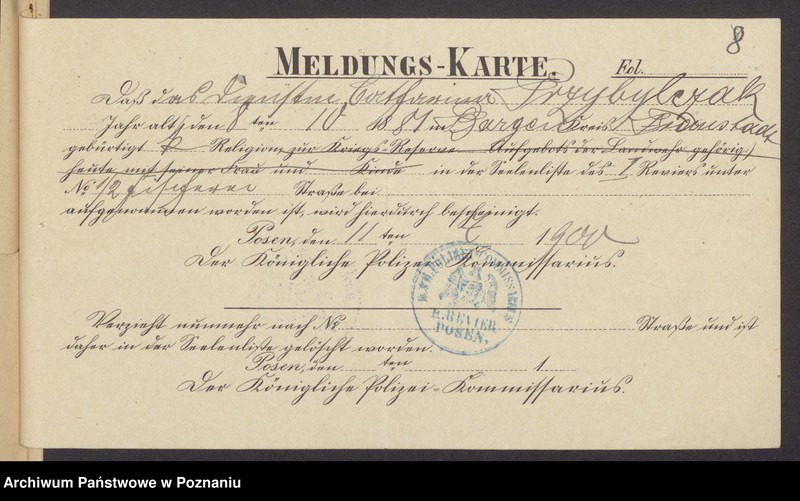 8
MELDUNGS-KARTE. Fol.
Daß das Dienstm. Catharina Przybylczak
Jahr alt, den 8 ten 10 1881 in Bargen Kreis Fraustadt
gebürtigt k Religion, zur Kriegs-Reserve Aufgebots der Landwehr gehörig,
heute mit seiner Frau und Kinde in der Seelenliste des I Reviers unter
No 12 Fischerei Straße bei
aufgenommen worden ist, wird hierdurch bescheinigt.
Posen, den 11 ten 1900
Der Königliche Polizei-Kommissarius.
KÖN. POLIZEI-COMMISSARIUS
I. REVIER
POSEN.
Verzieht nunmehr nach No Straße und ist
daher in der Seelenliste gelöscht worden.
Posen, den ten 1
Der Königliche Polizei-Kommissarius.
Archiwum Państwowe w Poznaniu